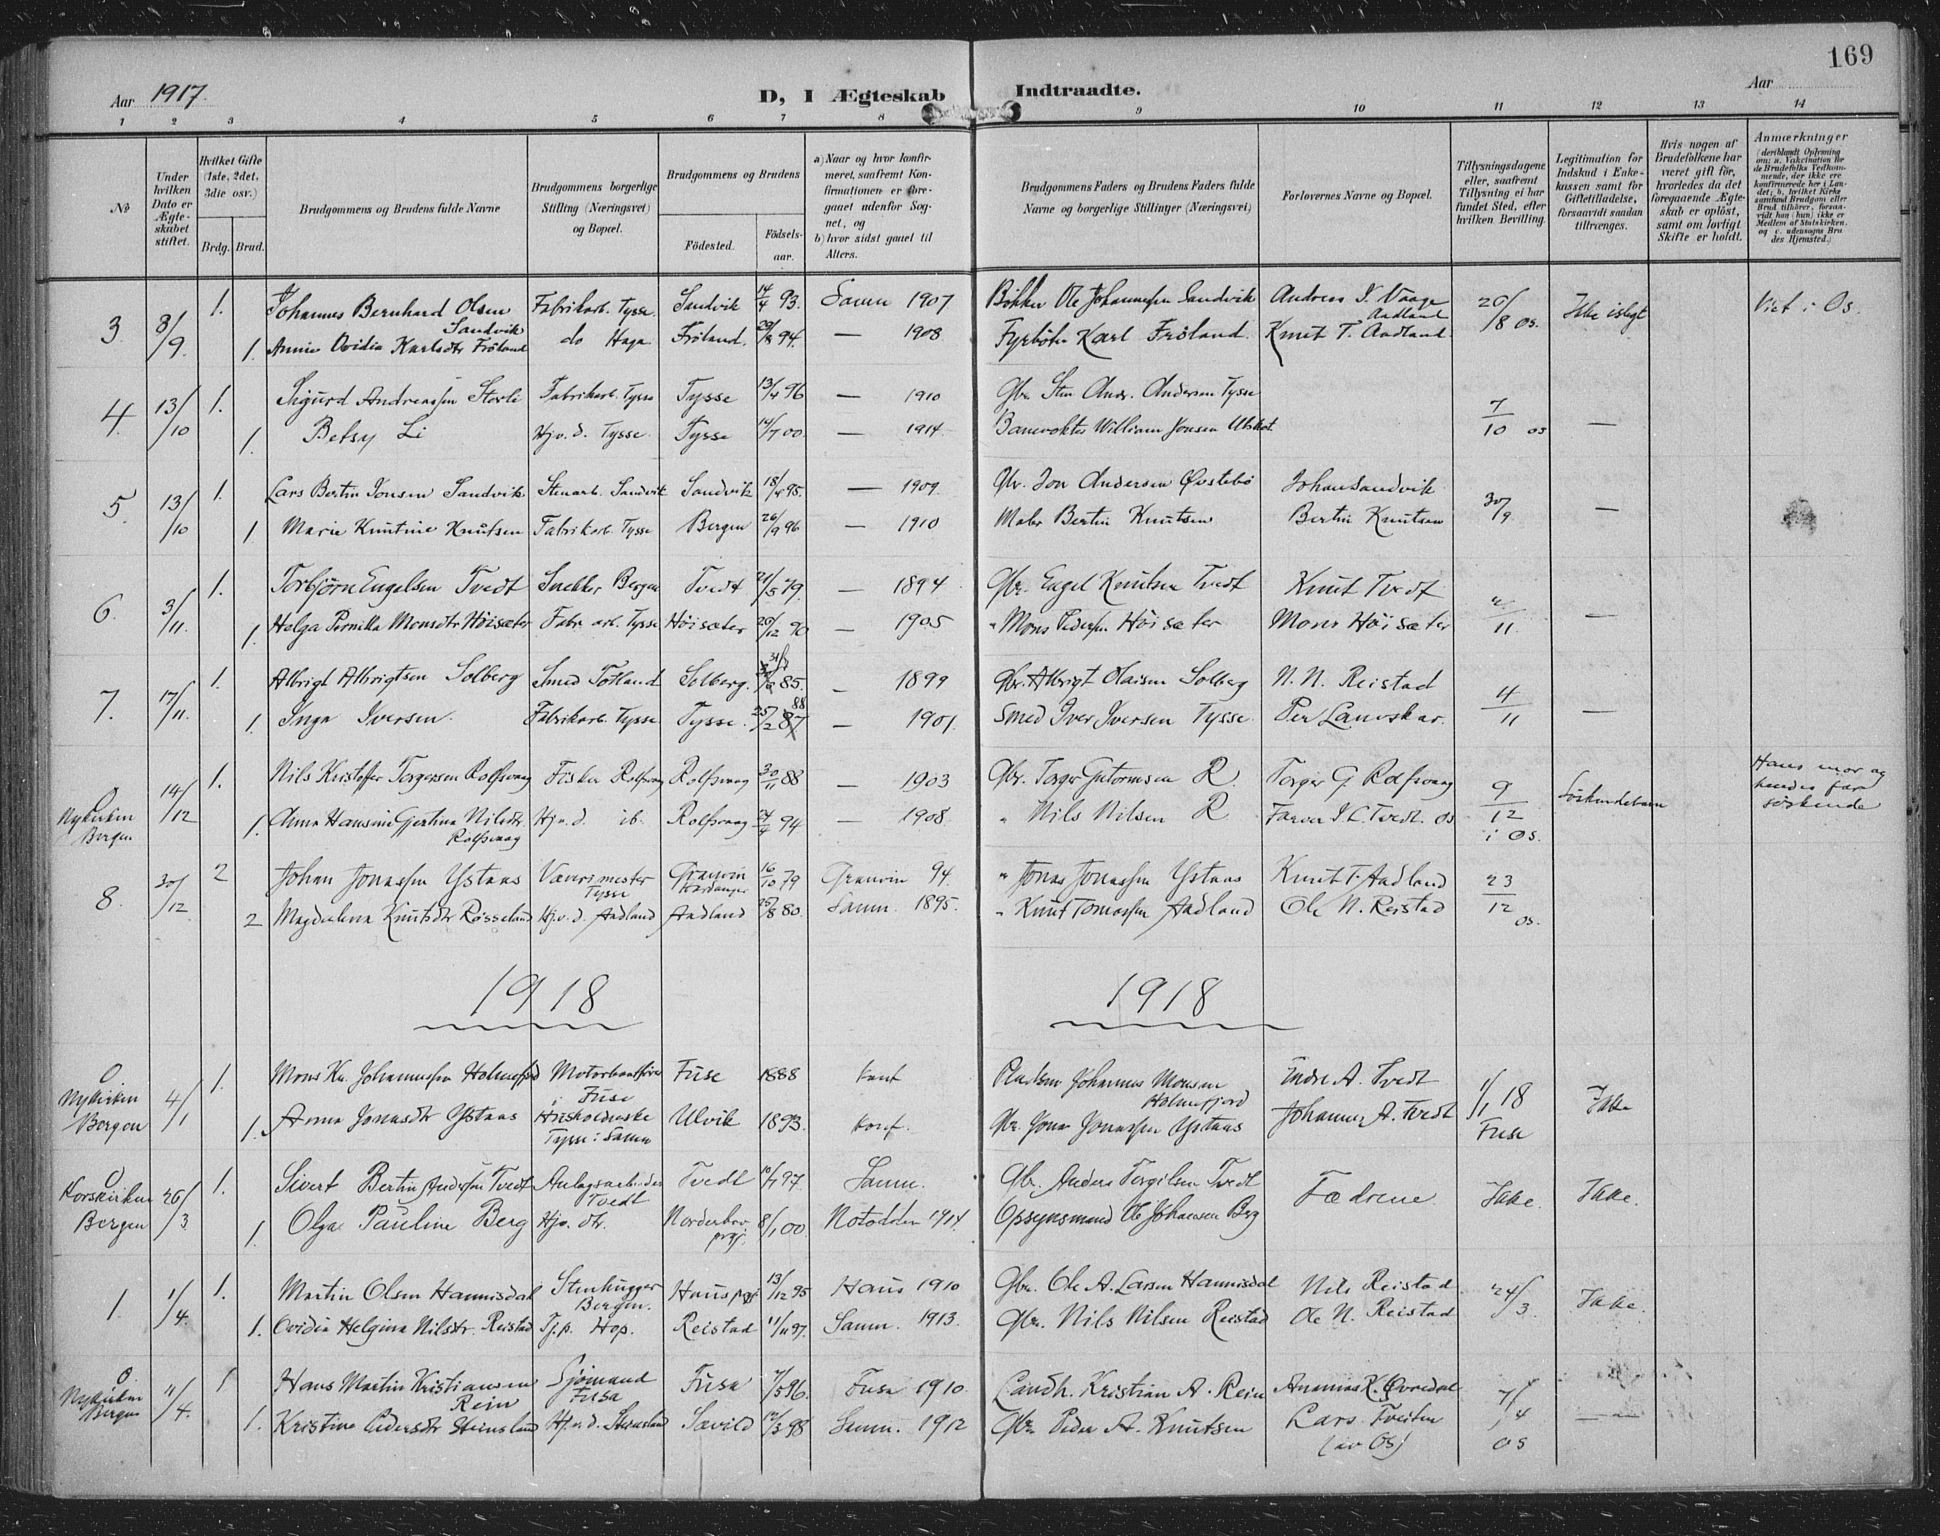 169
Aar 1917.
D, I Ægteskab Indtraadte.
Aar
1 2 3 4 5 6 7 8 9 10 11 12 13 14
No
Under hvilken Dato er Ægteskabet stiftet.
Hvilket Gifte (1ste, 2det, 3die osv.)
Brdg. Brud.
Brudgommens og Brudens fulde Navne
Brudgommens borgerlige Stilling (Næringsvei) og Bopæl.
Brudgommens og Brudens
Fødested. Fødselsaar.
a) Naar og hvor konfirmeret, saafremt Konfirmationen er foregaaet udenfor Sognet, og
b) hvor sidst gaaet til Alters.
Brudgommens Faders og Brudens Faders fulde Navne og borgerlige Stillinger (Næringsvei)
Forlovernes Navne og Bopæl.
Tillysningsdagene eller, saafremt Tillysning ei har fundet Sted, efter hvilken Bevilling.
Legitimation for Indskud i Enkekassen samt for Giftetilladelse, forsaavidt saadan tiltrænges.
Hvis nogen af Brudefolkene har været gift før, hvorledes da det foregaaende Ægteskab er opløst, samt om lovligt Skifte er holdt.
Anmærkninger
(deriblandt Oplysning om: a. Vakcination for de Brudefolks Vedkommende, der ikke ere konfirmerede her i Landet; b. hvilket Kirkesamfund Brudgom eller Brud tilhører, forsaavidt han (hun) ikke er Medlem af Statskirken, og c. udensogns Brudes Hjemsted.)
3 8/9 1. Johannes Bernhard Olsen Sandvik Fabrikarb. Tysse Sandvik 14/4 93. Samn 1907 Bøkker Ole Johannessen Sandvik Andreas J. Vaage Aadland 26/8 Os. Ikke isligt Viet i Os.
1. Annie Ovidia Karlsdtr Frøland do Haga Frøland. 29/8 94. — 1908 Fyrbøter Karl Frøland. Knut T. Aadland.
4. 13/10 1. Sigurd Andreassen Storli Fabrikarb. Tysse Tysse 13/4 96 — 1910 Gbr. Sten Andr. Andersen Tysse 7/10 os —
1. Betsy Li Hjv. d. Tysse. Tysse 14/7 00. — 1914. Banevokter William Jonsen
5. 13/10 1. Lars Bertin Jonsen Sandvik Stenarb. Sandvik Sandvik 18/4 95. — 1909. Gbr. Jon Andersen Øvstebø Johan Sandvik 30/9 —
1 Marie Knutine Knutsen Fabrikarb. Tysse Bergen 26/9 96 — 1910 Maler Bertin Knutsen Bertin Knutsen
6. 3/11. 1. Torbjørn Engelsen Tvedt Snekker Bergen Tvedt 21/5 79. — 1894 Gbr. Engel Knutsen Tvedt Knut Tvedt 11. —
1. Helga Pernilla Monsdtr Høisæter Fabr. arb. Tysse Høisæter 20/12 90 — 1905 " Mons Pedersen Høisæter Mons Høisæter
7. 17/11. 1. Albrigt Albrigtsen Solberg Smed Totland Solberg. 85. — 1899 Gbr. Albrigt Olaisen Solberg N. N. Reistad 4/11 —
1. Inga Iversen. Fabrikarb. Tysse Tysse. 25/2 87 88 — 1901. Smed Iver Iversen Tysse. Per Langskar.
0 Nykirken Bergen 14/12 1. Nils Kristoffer Torgersen Rolfsvaag Fisker Rolfsvaag Rolfsvaag 30/11 88 — 1903 Gbr. Torger Gutormsen R. Torger G Rolfsvaag 9/12 i Os. Søskendebarn Hans mor og hendes far søskende
1. Anna Hansine Gjertina Nilsdtr. Rolfsvaag Hjv. d. ib. Rolfsvaag 24/4 94 — 1908. " Nils Nilsen R Farver I. L. Tvedt. Os
8. 30/12 2 Johan Jonassen Ystaas Væverimester Tysse Granvin Hardanger 16/10 79 Granvin 94. " Jonas Jonassen Ystaas Knut T. Aadland 23/12 Os.
2 Magdalena Knutsdtr Røsseland Hjv. d. Aadland Aadland 25/8 80. Samn. 1895. " Knut Tomassen Aadland Ole N. Reistad
1918 1918
0 Nykirken Bergen 4/1 1. Mons Kn. Johannessen Holmefjord Motorbaatfører Fuse Fuse 1888 konf Pladsm Johannes Monsen Holmefjord Endre A. Tvedt 1/1 18 Fuse Ikke
1. Anna Jonasdtr Ystaas Husholderske Tysse i Samn Ulvik 1893. konf. Gbr. Jonas Jonassen Ystaas Johannes A. Tvedt
0 Korskirken Bergen 26/3 1. Sivert Bertin Andersen Tvedt Anlegsarbeider Tvedt Tvedt 10/7 97. Samn. Gbr. Anders Torgilsen Tvedt Fædrene Ikke. Ikke.
1. Olga Pauline Berg Hjv. dtr. Norderhov prgj. 8/1 00 Notodden 1914. Opsynsmand Ole Johansen Berg
1. 1/4. 1. Martin Olsen Hannisdal Stenhugger Bergen. Haus prgj 13/12 95 Haus 1910 Gbr. Ole A. Larsen Hannisdal Nils Reistad 24/3. Ikke.
1. Ovidia Helgina Nilsdtr. Reistad Tj.p. Hop. Reistad 11/11 97. Samn. 1913. Gbr. Nils Nilsen Reistad Ole N. Reistad
0. Nykirken Bergen 11/4. 1 Hans Martin Kristiansen Rein Sjømand Fusa Fusa 7/5 96. Fusa 1910. Landh. Kristian A. Rein Ananias K. Øvredal 7/4 Os —
1. Kristine Pedersdtr Steinsland Hjv. d. Steinsland Sævild 12/3 98 Samn. 1912 Gbr Peder A. Knutsen Lars Tveiten (av Os)